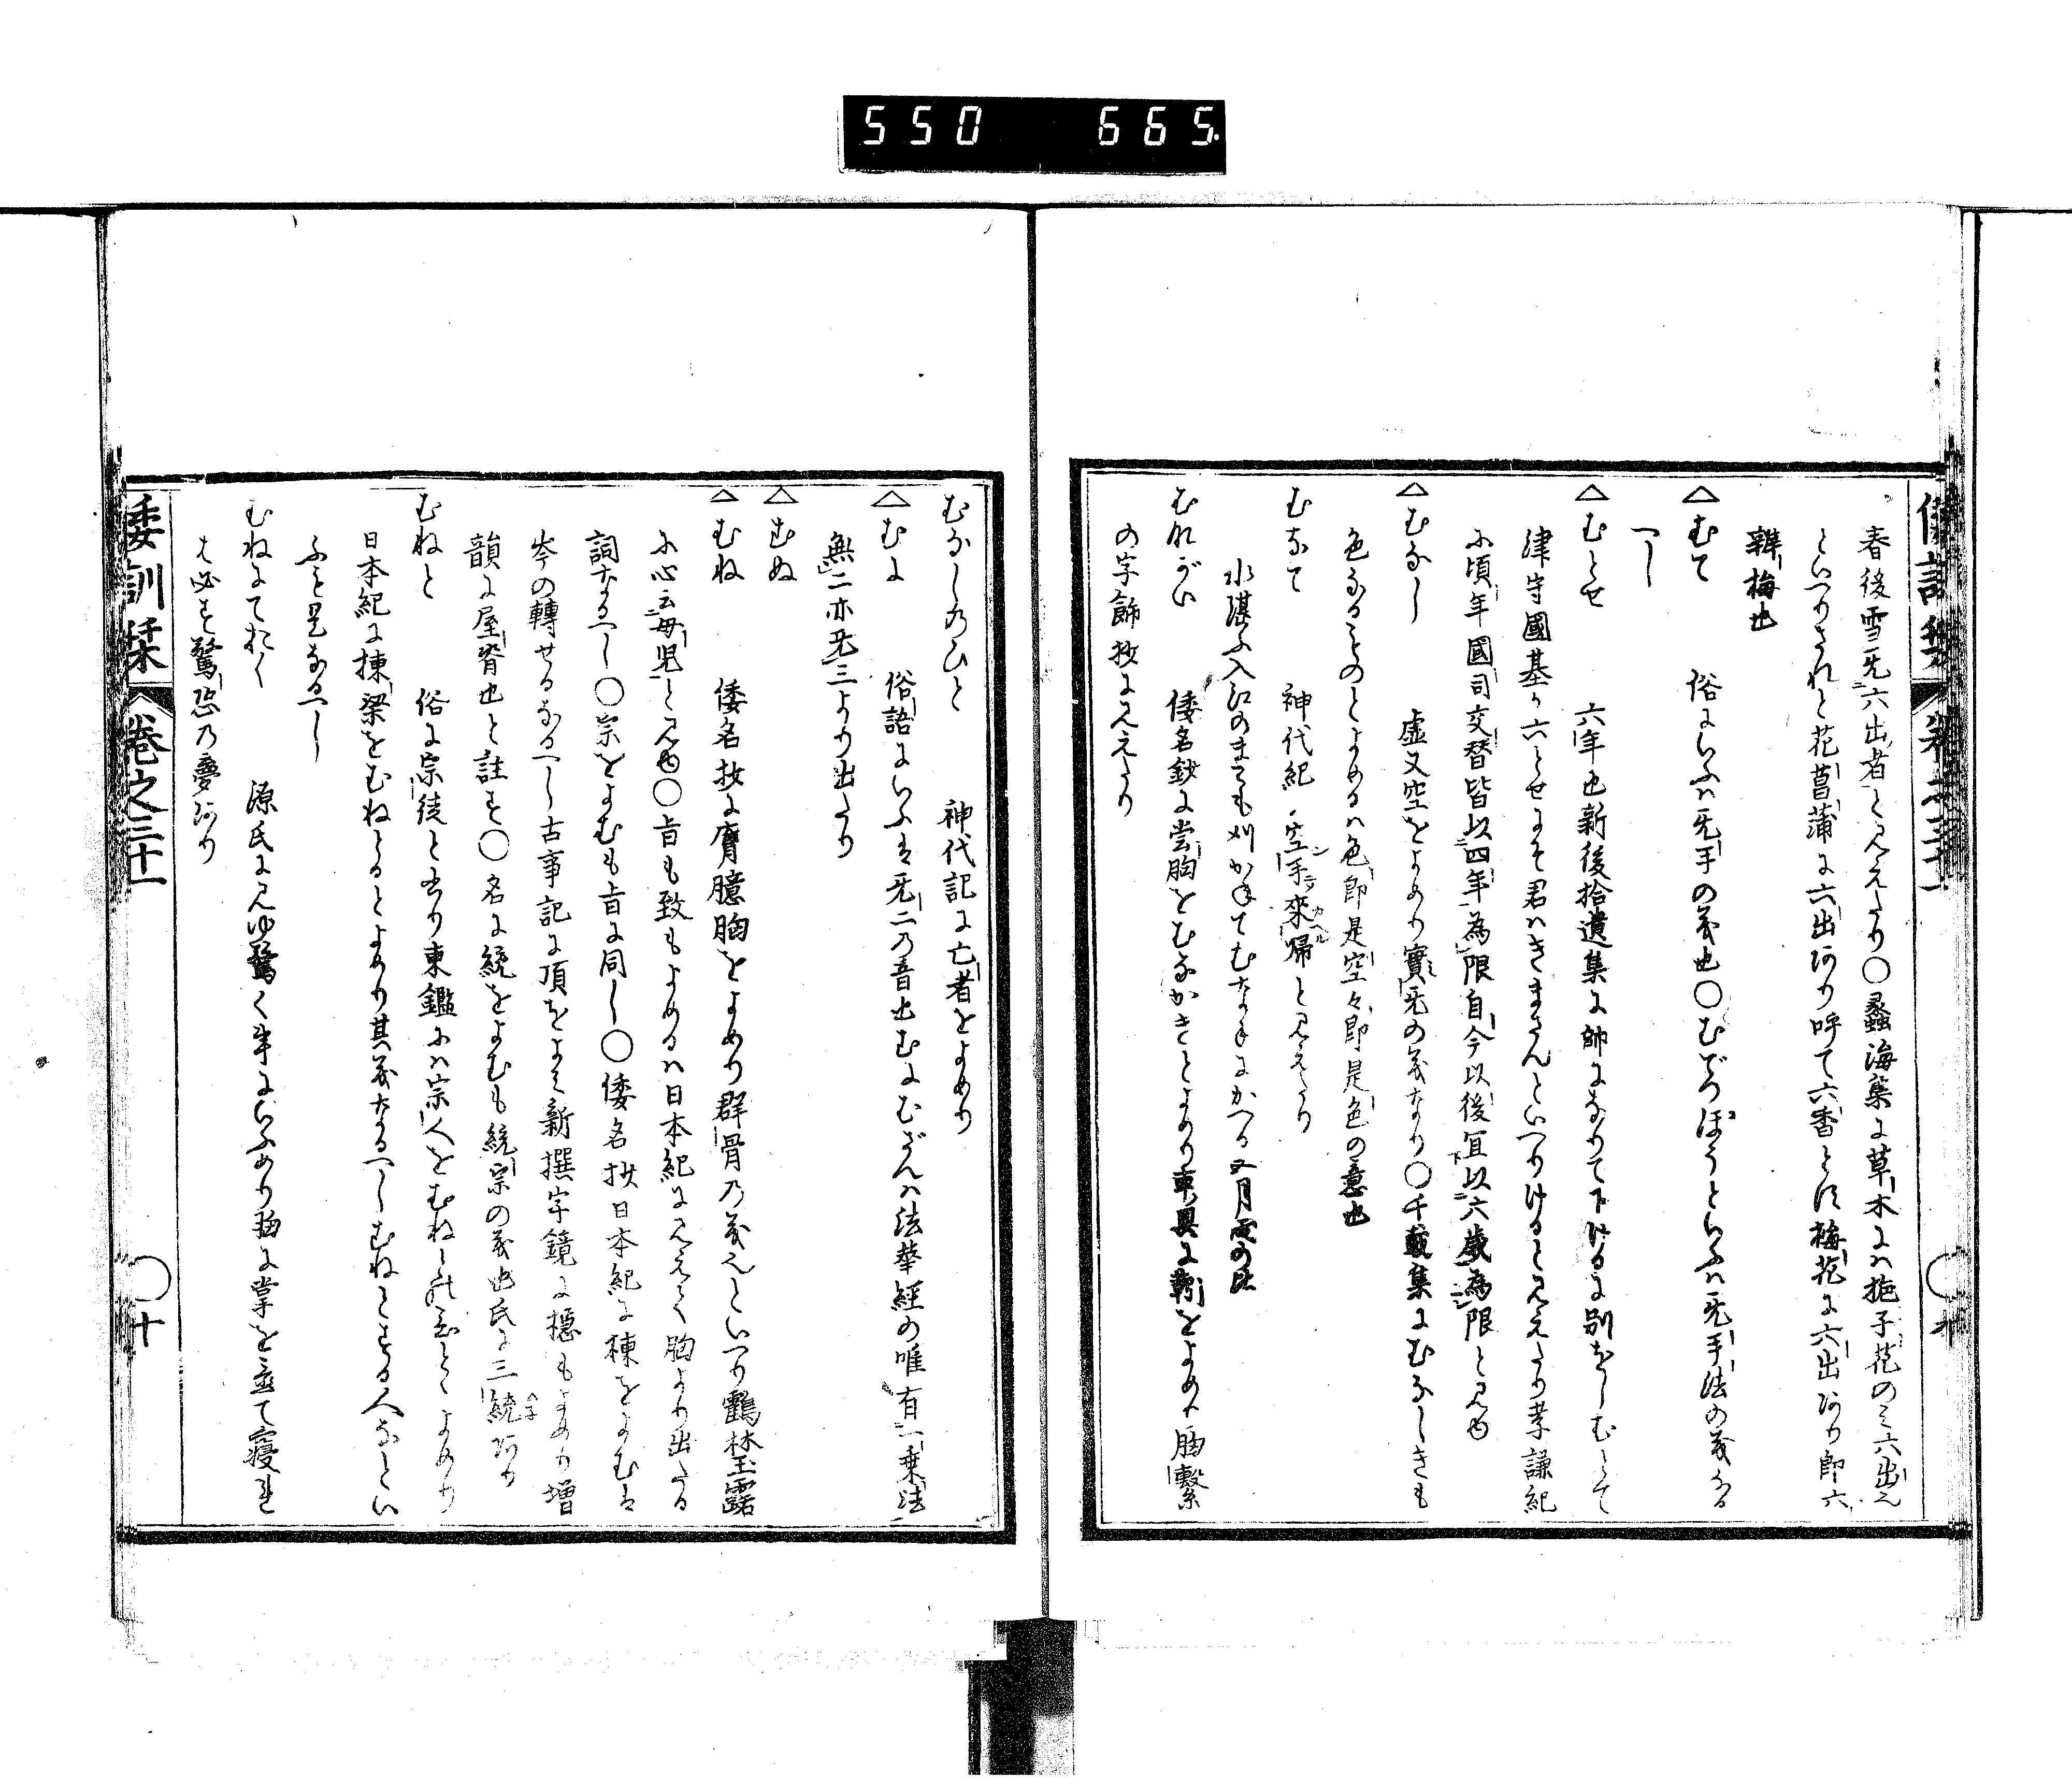 550 665.
春後雪无六出者と見えたり〇蠡海集に草木には梔子花のミ六出之
といへりされと花菖蒲に六出あり呼て六香とす梅花に六出あり即六
辨梅也
△むて 俗にいふハ无手の義也〇むてつぽうといふハ无手法の義なる
へし
△むとせ 六年也新後拾遺集に帥になりて下ける に別をしむとて
津守國基か六とせにそ君ハきまさんといへりけると見えたり孝謙紀
に頃年國司交替皆以四年為限自今以後宜以六歳為限と見ゆ
△むなし 虚又空をよめり實无の義なり〇千載集にむなしきも
色なるものとよめるハ色即是空々即是色の意也
むなて 神代紀 空手來歸と見えたり
水湛ふ入江のまこも刈かねてむなてにかへる五月雨の比
むながい 倭名鈔に當胸をむなかきとよめり車具に靷をよめり胸繋
の字餝抄に見えたり
むなしのひと 神代記に亡者をよめり
△むに 俗語にいふは无二の音也むにむざんハ法華經の唯有一乗法
無二亦无三より出たり
△むぬ
△むね 倭名抄に膺臆胸をよめり群骨乃義也といへり鶴林玉露
に心云母児と見ゆ〇旨も致もよめるハ日本紀に見えて胸より出たる
詞なるへし〇宗をよむも旨に同し〇倭名抄日本紀に棟をよむは
岑の轉せるなるへし古事記に頂をよミ新撰字鏡に檼もよめり増
韻に屋脊也と註せり〇名に統をよむも統宗の義也氏に三統あり
むねと 俗に宗徒と書り東鑑にハ宗人をむねとの とよめり
日本紀に棟梁をむねとるとよめり其義なるへしむねとする人なとい
ふも是なるへし
むねにてたく 源氏に見ゆ驚く事にいふめり胸に掌を立て寝れ
は必す驚恐乃夢あり
倭訓栞 卷之三十一 〇十